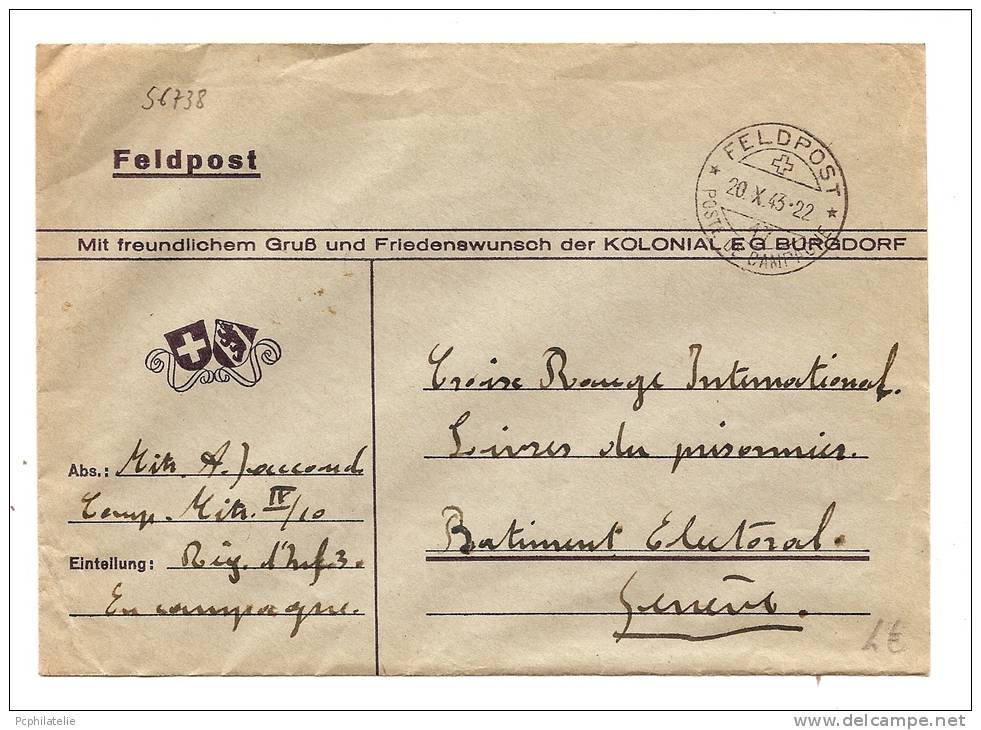 56738
Feldpost
FELDPOST
20.X.43-22
47
POSTE DE CAMPAGNE
Mit freundlichem Gruß und Friedenswunsch der KOLONIAL EG BURGDORF
Croix Rouge International.
Livres du prisonnier.
Batiment Electoral.
Genève.
Abs.: Mitr. A. Jaccoud
Comp. Mitr. IV/10
Einteilung: Rég. d'Inf 3.
En campagne.
4€
Pcphilatelie
www.delcampe.net